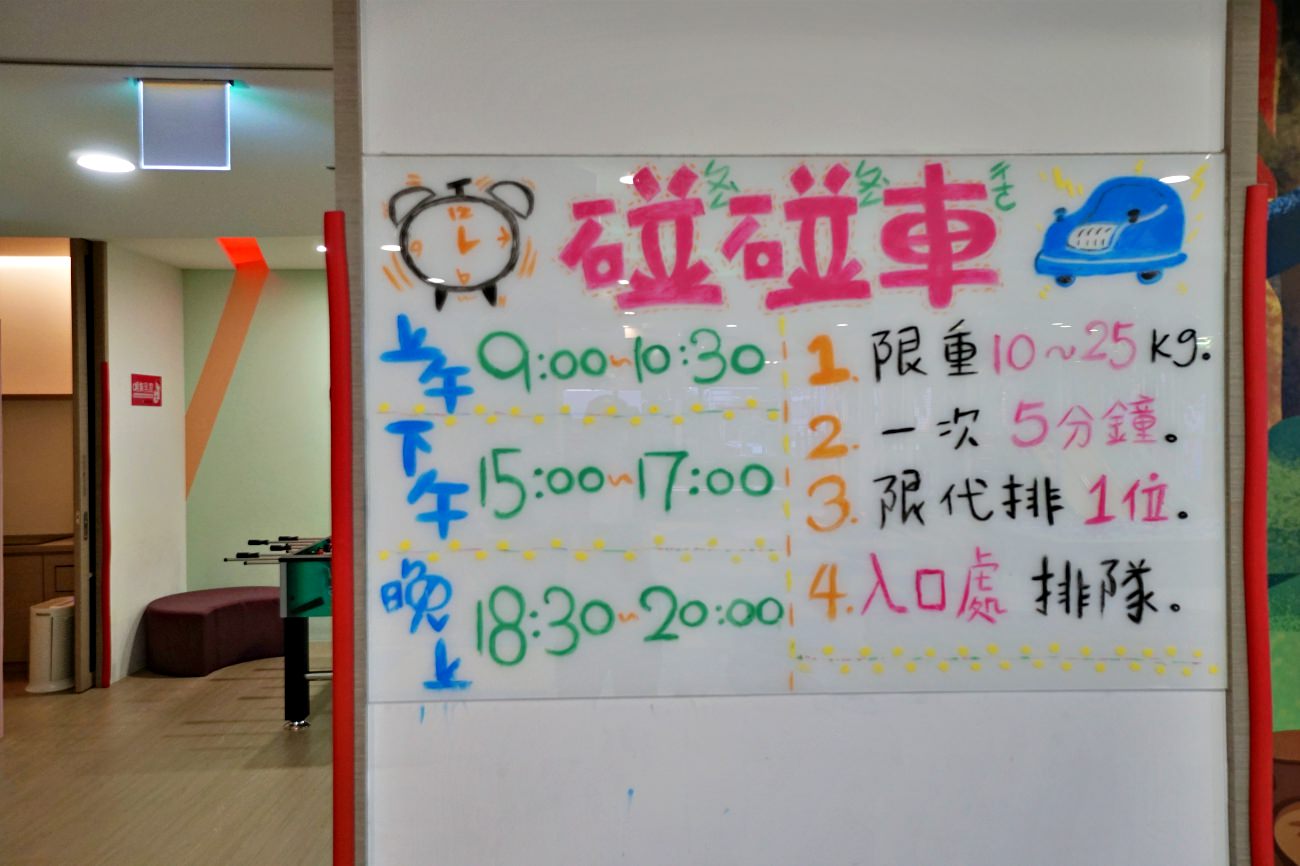 碰碰車
上午 9:00~10:30
下午 15:00~17:00
晚上 18:30~20:00
1. 限重10~25kg.
2. 一次 5分鐘。
3. 限代排 1位。
4. 入口處 排隊。